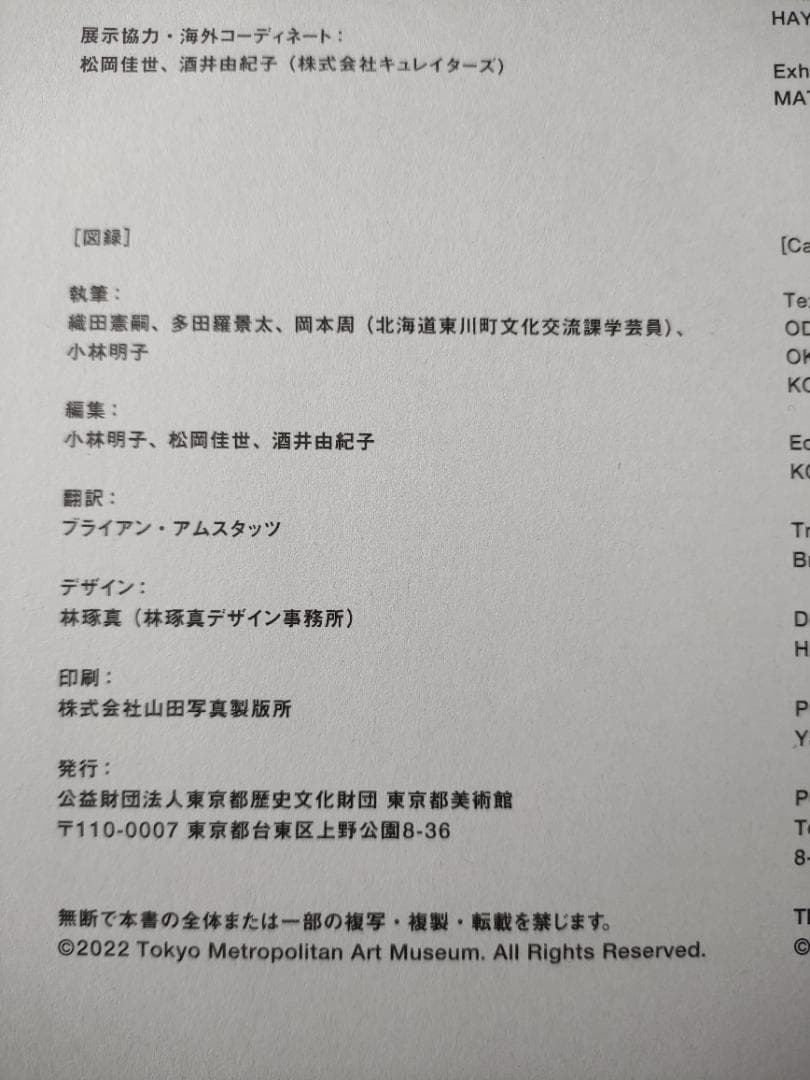 展示協力・海外コーディネート：
松岡佳世、酒井由紀子（株式会社キュレイターズ）
［図録］
執筆：
織田憲嗣、多田羅景太、岡本周（北海道東川町文化交流課学芸員）、
小林明子
編集：
小林明子、松岡佳世、酒井由紀子
翻訳：
ブライアン・アムスタッツ
デザイン：
林琢真（林琢真デザイン事務所）
印刷：
株式会社山田写真製版所
発行：
公益財団法人東京都歴史文化財団 東京都美術館
〒110-0007 東京都台東区上野公園8-36
無断で本書の全体または一部の複写・複製・転載を禁じます。
©2022 Tokyo Metropolitan Art Museum. All Rights Reserved.
HAY
Exh
MAT
[Ca
Te
OD
OK
KO
Ed
KO
Tr
Br
D
H
P
Y
P
To
8-
Th
©